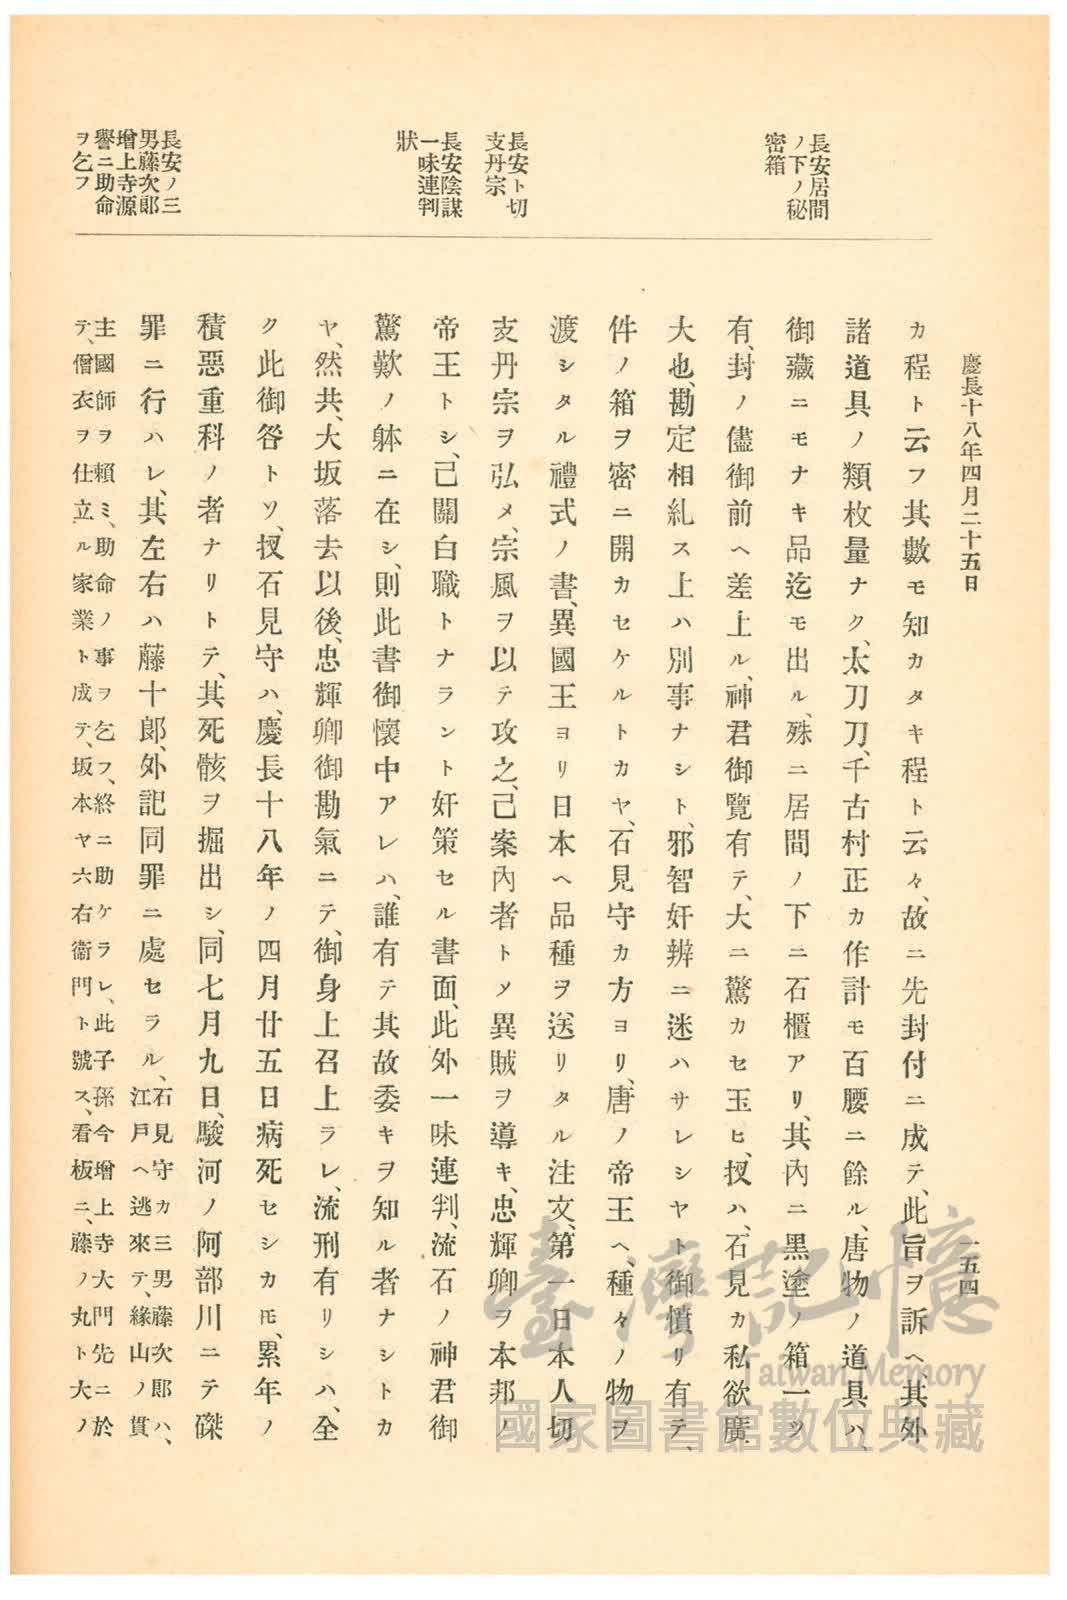 慶長十八年四月二十五日
一五四
長安居間
ノ下ノ秘
密箱
長安ト切
支丹宗
長安陰謀
一味連判
狀
長安ノ三
男藤次郎
增上寺源
譽ニ助命
ヲ乞フ
カ程ト云フ其數モ知カタキ程ト云々、故ニ先封付ニ成テ、此旨ヲ訴ヘ其外
諸道具ノ類、枚量ナク、太刀刀、千古村正カ作計モ百腰ニ餘ル、唐物ノ道具ハ、
御藏ニモナキ品迄モ出ル、殊ニ居間ノ下ニ石櫃アリ、其內ニ黑塗ノ箱一ツ
有、封ノ儘御前ヘ差上ル、神君御覽有テ、大ニ驚カセ玉ヒ、扠ハ、石見カ私欲廣
大也、勘定相糺ス上ハ別事ナシト、邪智奸辨ニ迷ハサレシヤト御憤リ有テ、
件ノ箱ヲ密ニ開カセケルトカヤ、石見守カ方ヨリ、唐ノ帝王ヘ、種々ノ物ヲ
渡シタル禮式ノ書、異國王ヨリ日本ヘ品種ヲ送リタル注文、第一日本人切
支丹宗ヲ弘メ、宗風ヲ以テ攻之、己案內者トメ異賊ヲ導キ、忠輝卿ヲ本邦ノ
帝王トシ、己關白職トナラント奸策セル書面、此外一味連判、流石ノ神君御
驚歎ノ躰ニ在シ、則此書御懷中アレハ、誰有テ其故委キヲ知ル者ナシトカ
ヤ、然共、大坂落去以後、忠輝卿御勘氣ニテ、御身上召上ラレ、流刑有リシハ、全
ク此御咎トソ、扠石見守ハ、慶長十八年ノ四月廿五日病死セシカ𪜈、累年ノ
積惡重科ノ者ナリトテ、其死骸ヲ掘出シ、同七月九日、駿河ノ阿部川ニテ磔
罪ニ行ハレ、其左右ハ藤十郎、外記同罪ニ處セラル、石見守カ三男藤次郎ハ、
江戸ヘ逃來テ、緣山ノ貫
主國師ヲ賴ミ、助命ノ事ヲ乞フ、終ニ助ケラレ、此子孫今增上寺大門先ニ於
テ、僧衣ヲ仕立ル家業ト成テ、坂本ヤ六右衞門ト號ス、看板ニ、藤ノ丸ト大ノ
臺灣記憶
Taiwan Memory
國家圖書館數位典藏